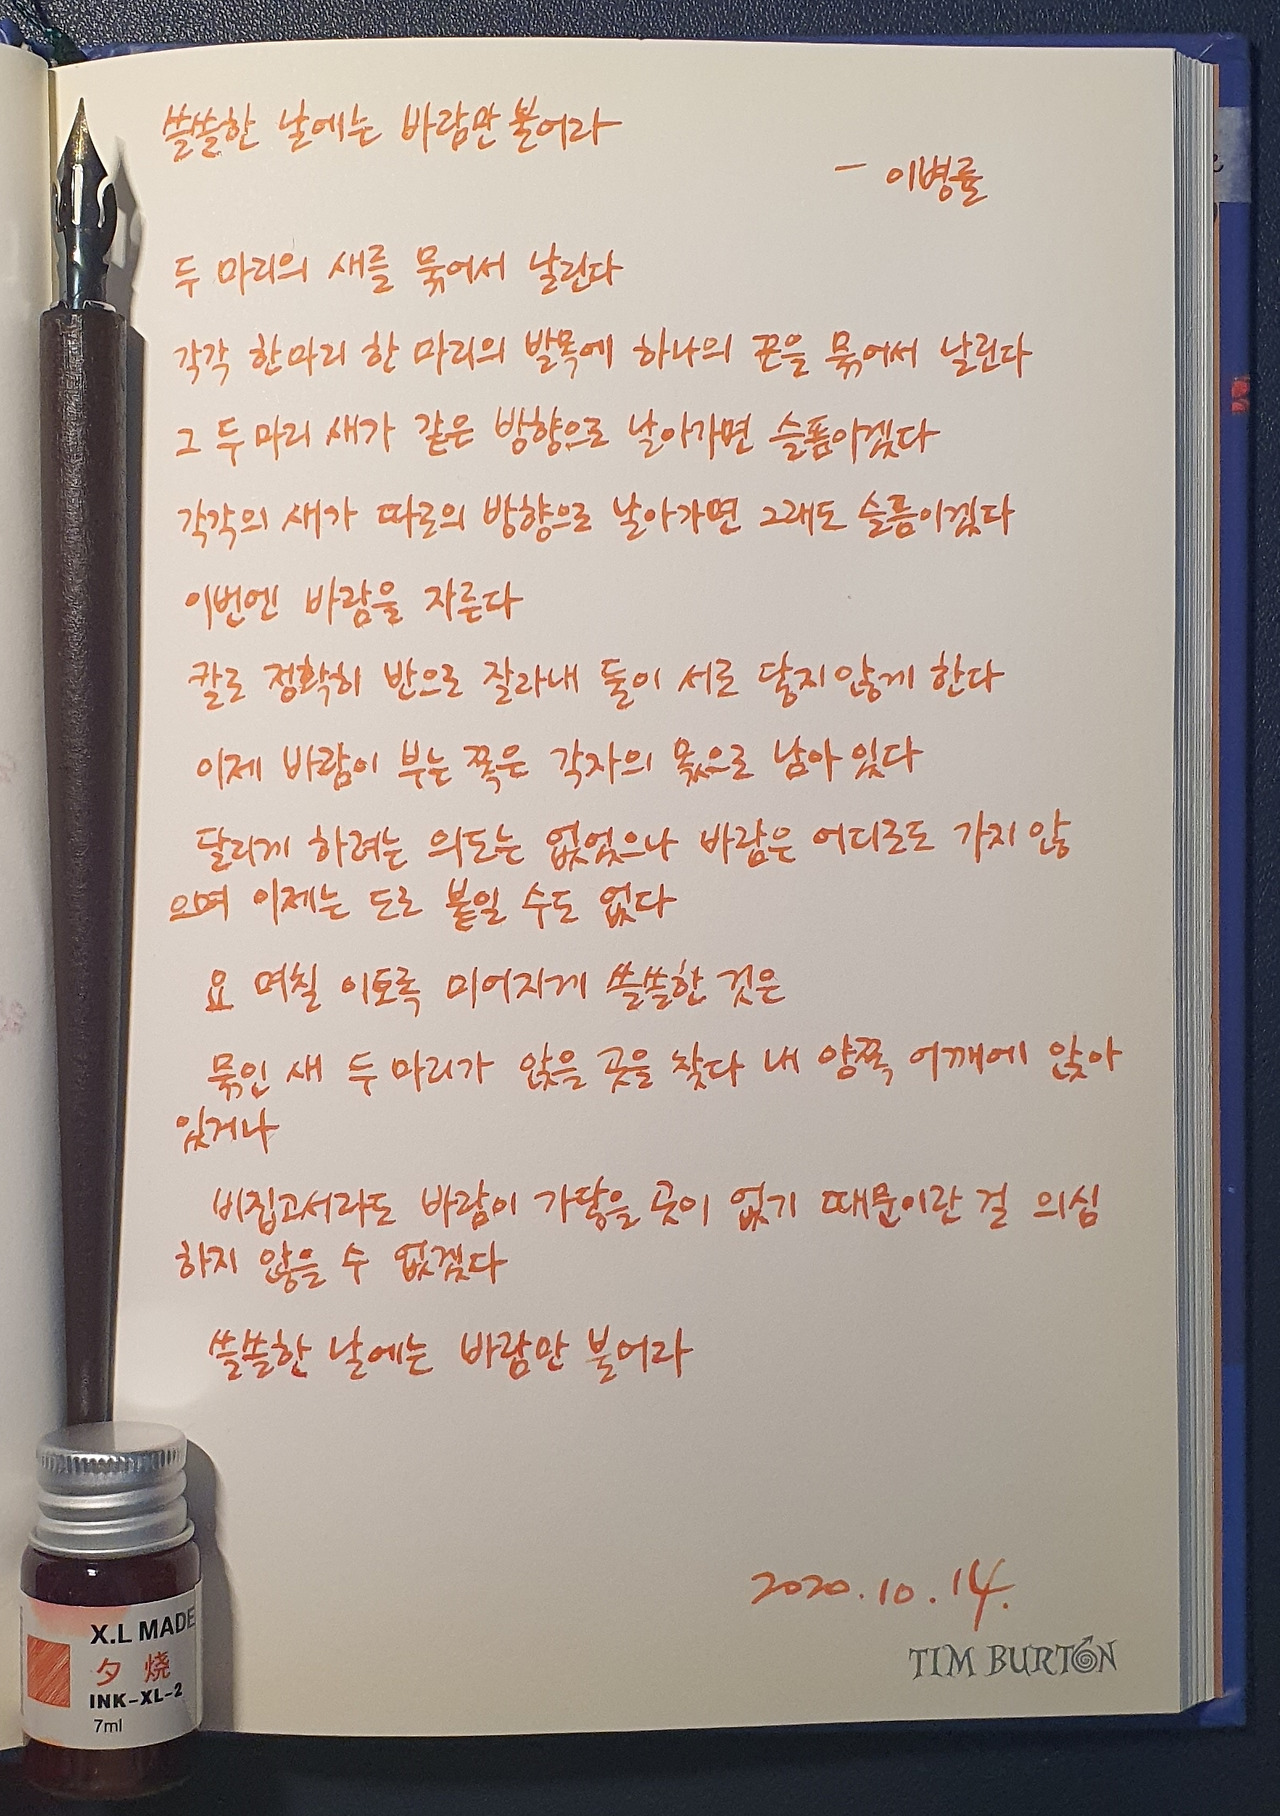 쓸쓸한 날에는 바람만 불어라
- 이병률
두 마리의 새를 묶어서 날린다
각각 한마리 한 마리의 발목에 하나의 끈을 묶어서 날린다
그 두 마리 새가 같은 방향으로 날아가면 슬픔이겠다
각각의 새가 따로의 방향으로 날아가면 그래도 슬픔이겠다
이번엔 바람을 자른다
칼로 정확히 반으로 잘라내 둘이 서로 닿지 않게 한다
이제 바람이 부는 쪽은 각자의 몫으로 남아 있다
달리게 하려는 의도는 없었으나 바람은 어디로도 가지 않
으며 이제는 도로 붙일 수도 없다
요 며칠 이토록 미어지게 쓸쓸한 것은
묶인 새 두 마리가 앉을 곳을 찾다 내 양쪽 어깨에 앉아
있거나
비집고서라도 바람이 가닿을 곳이 없기 때문이란 걸 의심
하지 않을 수 없겠다
쓸쓸한 날에는 바람만 불어라
2020.10.14.
TIM BURTON
X.L MADE
夕 烧
INK-XL-2
7ml